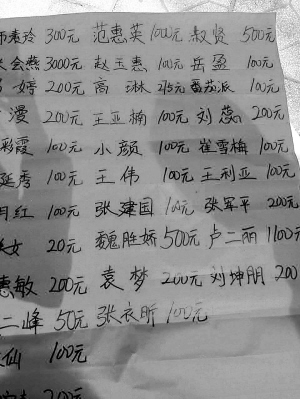 素玲 300元 范惠英 1000元 赦贤 500元
会燕 3000元 赵玉惠 100元 岳盈 100元
婷 200元 高琳 215元 番茄派 100元
漫 200元 王亚楠 100元 刘蕊 200元
彩霞 100元 小颜 100元 崔雪梅 100元
延秀 100元 王伟 100元 王利亚 100元
月红 100元 张建国 100元 张军平 200元
女 20元 魏胜娇 500元 卢二丽 1100元
惠敏 200元 袁梦 200元 刘坤朋 200
二峰 50元 张衣昕 100元
仙 100元
200元